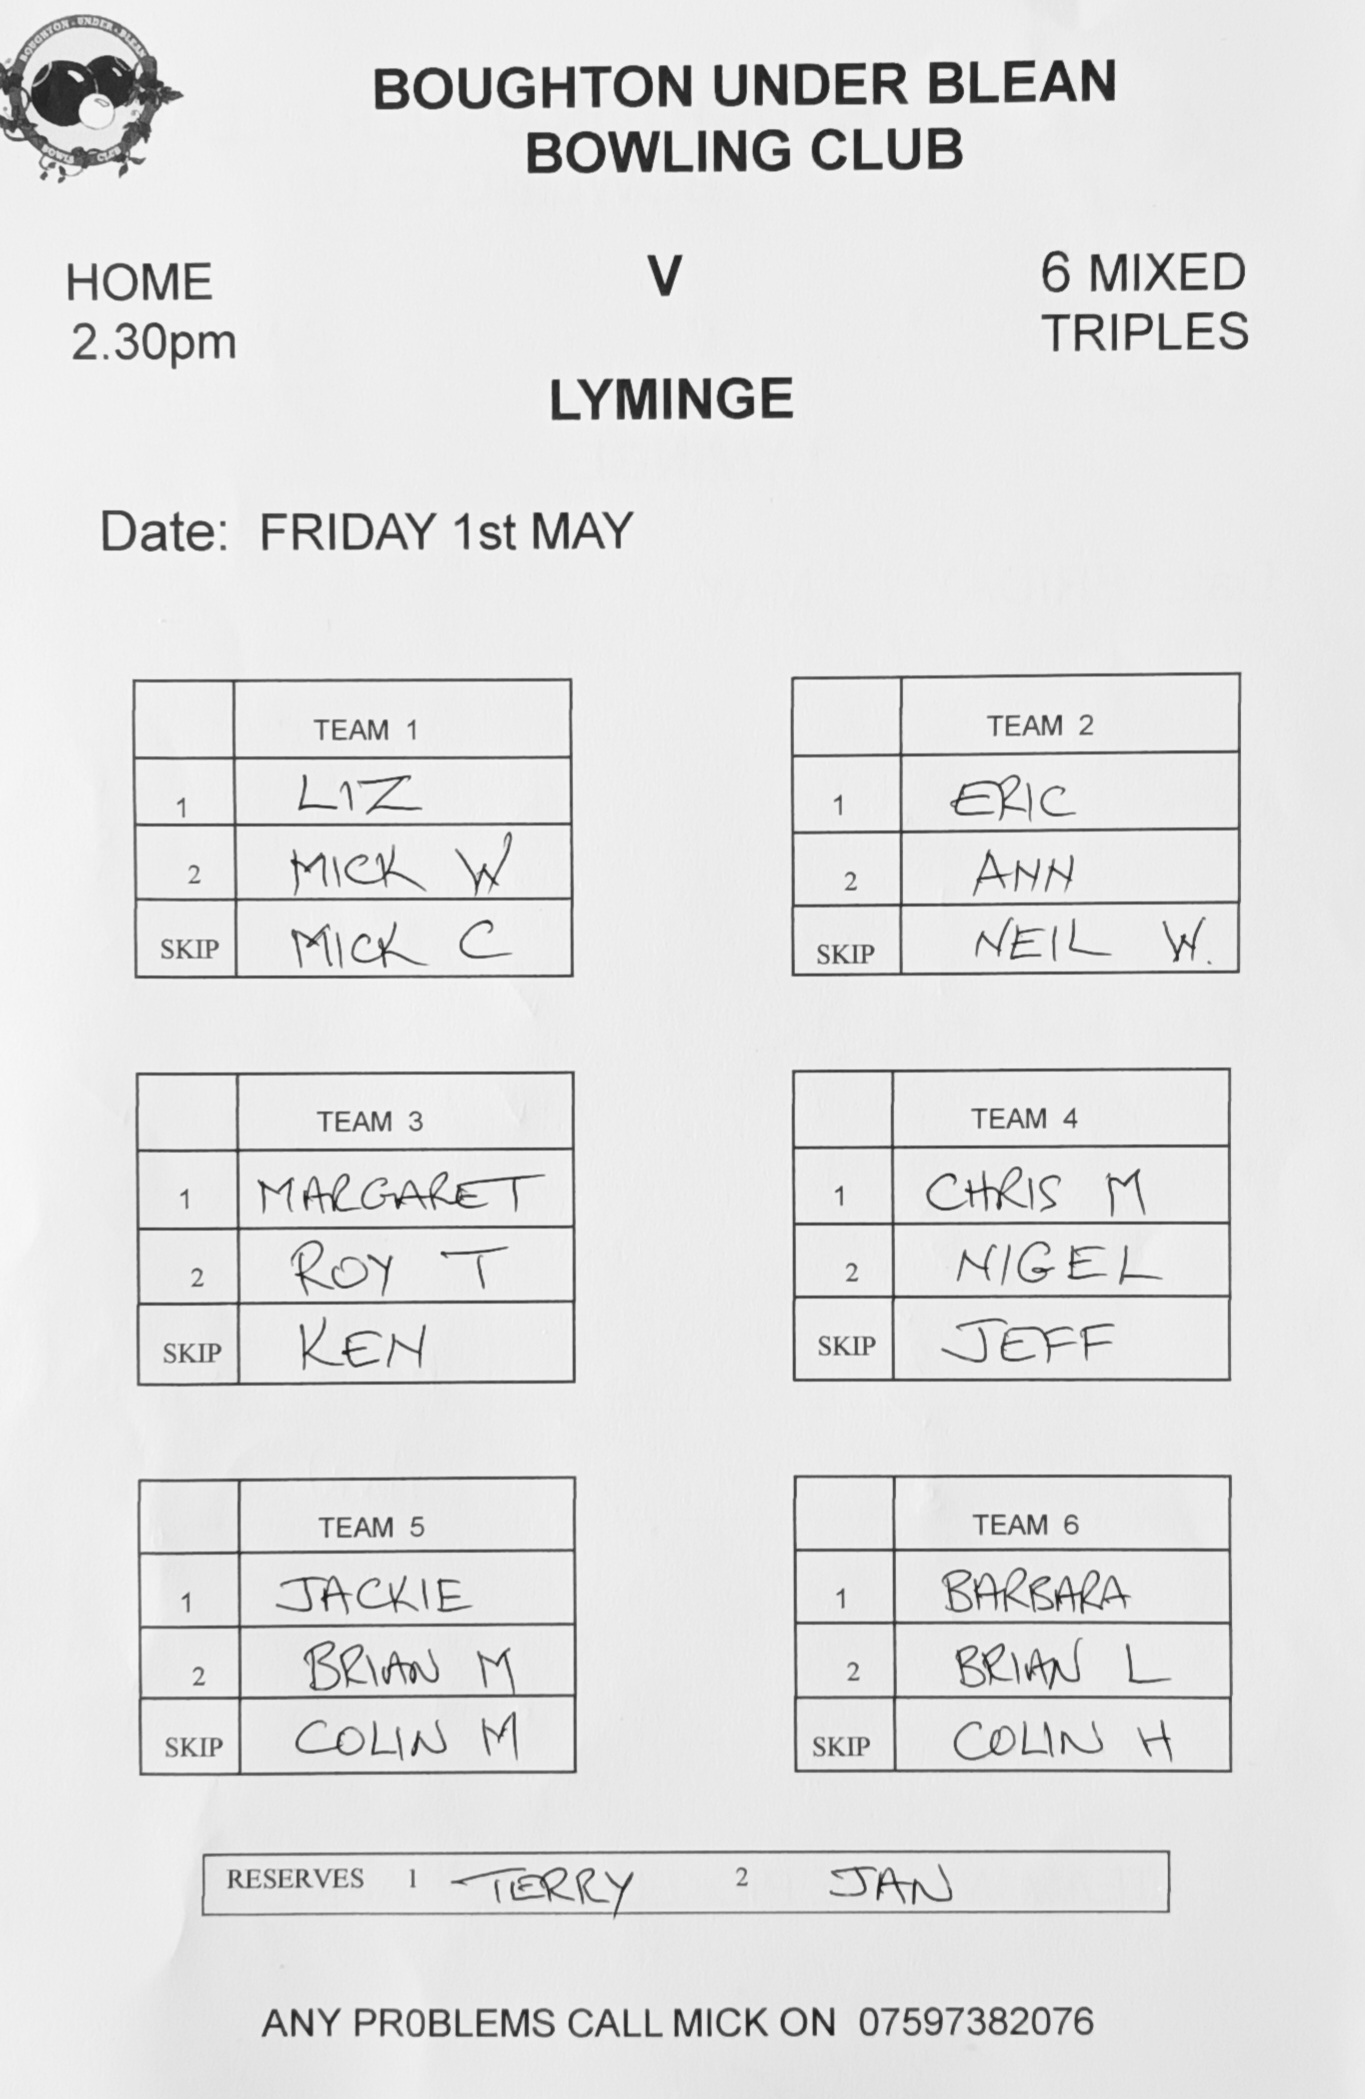 BOUGHTON - UNDER - BLEAN
BOWLS CLUB
BOUGHTON UNDER BLEAN
BOWLING CLUB
HOME V 6 MIXED
2.30pm TRIPLES
LYMINGE
Date: FRIDAY 1st MAY
TEAM 1
1 LIZ
2 MICK W
SKIP MICK C
TEAM 2
1 ERIC
2 ANN
SKIP NEIL W.
TEAM 3
1 MARGARET
2 ROY T
SKIP KEN
TEAM 4
1 CHRIS M
2 NIGEL
SKIP JEFF
TEAM 5
1 JACKIE
2 BRIAN M
SKIP COLIN M
TEAM 6
1 BARBARA
2 BRIAN L
SKIP COLIN H
RESERVES 1 TERRY 2 JAN
ANY PROBLEMS CALL MICK ON 07597382076